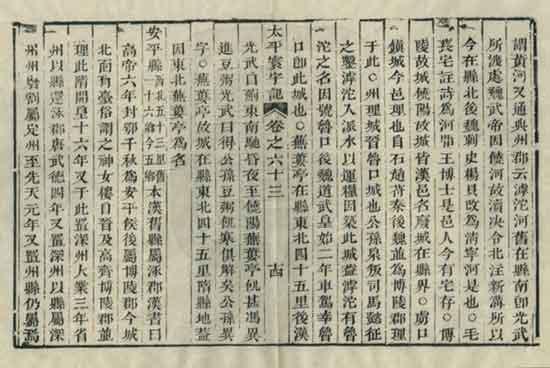 謂黃河又通典州郡云滹沱河舊在縣南即光武
所渡處魏武帝因饒河故瀆決令北注新溝所以
今在縣北後魏刺史楊真改為清寧河是也○毛
萇宅註詩為河間王博士是邑人今有宅存○博
陵故城饒陽故城皆漢邑名廢城在縣界○虜口
鎮城今邑理也自石趙苻秦後魏並為博陵郡理
于此○州理城晉魯口城也公孫泉叛司馬懿征
之鑿滹沱入派水以運糧因築此城蓋滹沱有魯
沱之名因號魯口後魏道武皇始二年車駕幸魯
口即此城也○蕪蔞亭在縣東北四十五里後漢
太平寰宇記 卷之六十三 古
光武自薊東南馳昏夜至饒陽蕪蔞亭飢甚馮異
進豆粥光武曰得公孫豆粥飢寒俱解矣公孫異
字○蕪蔞亭故城在縣東北四十五里隋縣地蓋
因東北蕪蔞亭為名
安平縣 西北五十三里舊十六鄉今五鄉 本漢舊縣屬涿郡漢書曰
高帝六年封鄂千秋為安平侯後屬博陵郡今城
北面有臺俗謂之神女樓自晉及高齊博陵郡並
理此隋開皇十六年又于此置深州大業三年省
州以縣還涿郡唐武德四年又置深州以縣屬深
州州廢割屬定州至先天元年又置州縣仍屬焉